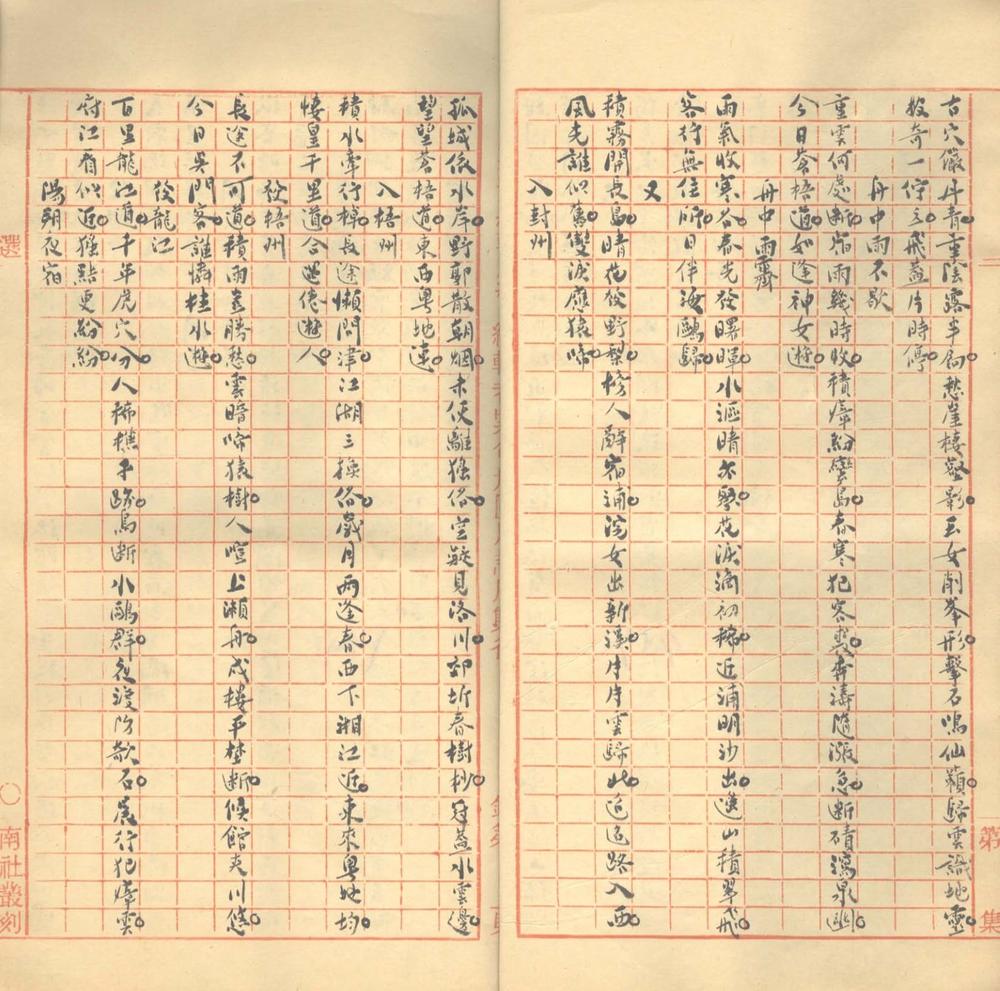 古穴儼丹青。重陰露半扃。愁崖棲壑影。玉女削峯形。擊石鳴仙籟。歸雲識地靈。
奇一佇立。飛蓋片時停。
舟中雨不歇
重雲何處斷。宿雨幾時收。積瘴紛蠻島。春寒犯客裘。奔濤隨漲急。斷磧瀉泉幽。
今日蒼梧道。如逢神女遊。
舟中雨霽
雨氣收寒谷。春光發曙暉。水漚晴不聚。花淚滴初稀。近浦明沙出。遙山積翠飛。
客行無住所。日伴海鷗歸。
又
積霧開長島。晴花發野。榜人辭宿浦。浣女出新溪。片片雲歸北。迢迢路入西。
風光誰似舊。雙淚應猿啼。
入封州
第 集
孤城依水岸。野郭散朝烟。未使離猺俗。空疑見洛川。郊圻春樹杪。冠蓋水雲邊。
望望蒼梧道。東西粵地連。
入梧州
積水牽行棹。長途懶問津。江湖三換俗。歲月兩逢春。西下湘江近。東來粵地均。
悽皇千里道。今世倦遊人。
發梧州
長途不可道。積雨益勝愁。雲暗啼猿樹。人喧上瀨舟。戍樓平埜斷。候館夾川悠。
今日吳門客。誰憐桂水遊。
發龍江
百里龍江道。千年虎穴分。人稀樵子跡。鳥斷水鷗群。夜渡防欹石。晨行犯瘴雲。
府江看似近。猺點更紛紛。
陽朔夜宿
選 〇南社叢刻